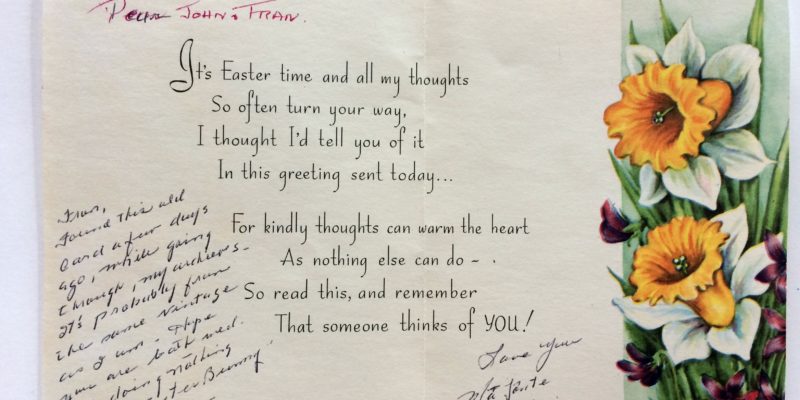 Dear JOHN & FRAN.
It's Easter time and all my thoughts
So often turn your way,
I thought I'd tell you of it
In this greeting sent today...
For kindly thoughts can warm the heart
As nothing else can do –
So read this, and remember
That someone thinks of YOU!
Fran,
Found this old
card a few days
ago, while going
through, my archieves-
It's probably from
the same vintage
as I am. Hope
you are both well.
doing nothing
Bunny"
Love you